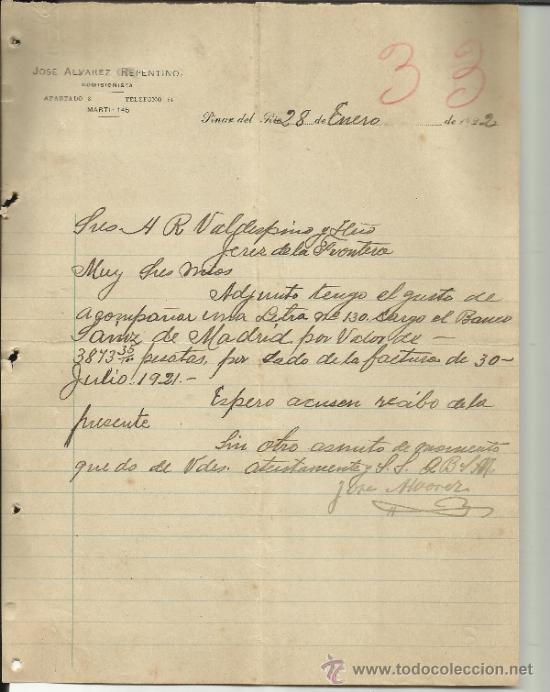 33
JOSE ALVAREZ (REPENTINO)
COMISIONISTA
APARTADO 8 TELEFONO
MARTI-145
Pinar del Rio 28 de Enero de 1922
Sres. A R Valdespino y Hno
Jerez de la Frontera
Muy Sres mios
Adjunto tengo el gusto de
acompañar una Letra No 130 cargo el Banco
Sainz de Madrid por Valor de —
3873 35/00 pesetas, por saldo de la factura de 30—
Julio 1921.—
Espero acusen recibo de la
presente
Sin otro asunto de momento
quedo de Vdes. atentamente y S. S. Q B S M.
Jose Alvarez
todocoleccion
www.todocoleccion.net